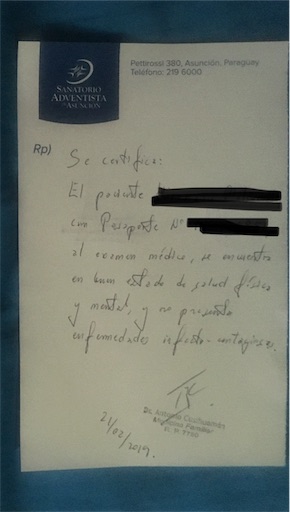 SANATORIO
ADVENTISTA
DE ASUNCIÓN
Pettirossi 380, Asunción, Paraguay
Teléfono: 219 6000
Rp)
Se certifica:
El paciente
con Pasaporte N°
al examen médico, se encuentra
en buen estado de salud física
y mental, y no presenta
enfermedades infecto-contagiosas.
Dr. Antonio
Medicina Familiar
21/02/2019.